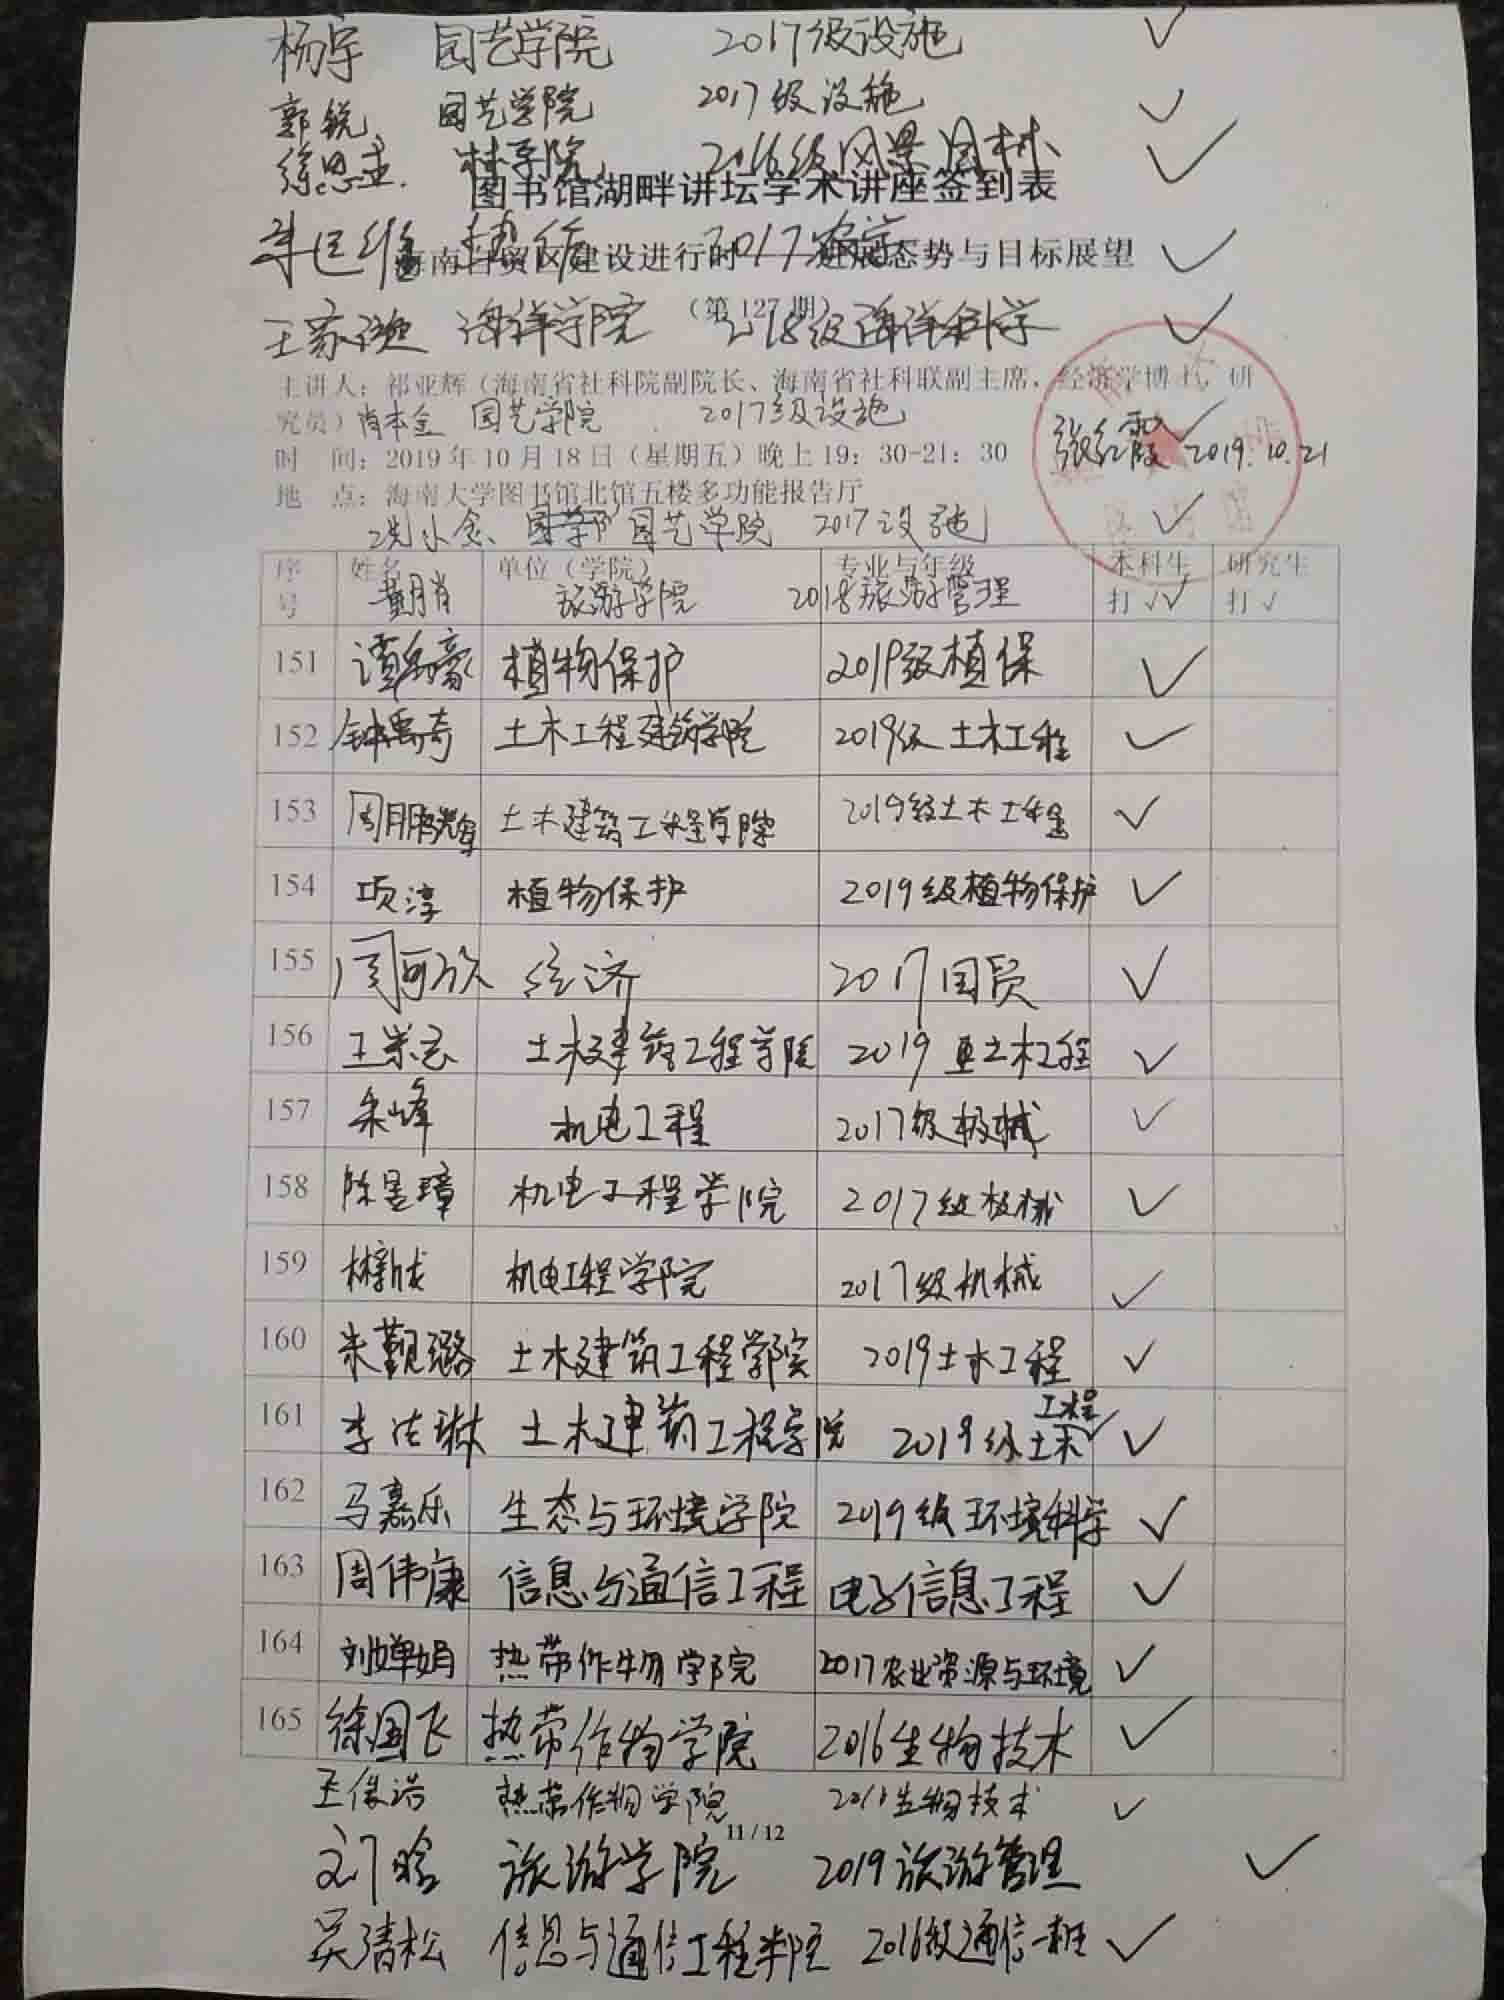 杨宇 园艺学院 2017级设施 ✓
郭锐 园艺学院 2017级设施 ✓
徐思 林学院 2016级风景园林 ✓
图书馆湖畔讲坛学术讲座签到表
2017 ✓
海南自贸区建设进行时 进展态势与目标展望
(第127期)
王 海洋学院 2018级海洋科学 ✓
主讲人：祁亚辉（海南省社科院副院长、海南省社科联副主席，经济学博士，研
究员）肖本金 园艺学院 2017级设施 ✓
张红霞 2019.10.21
时 间：2019年10月18日（星期五）晚上19：30-21：30
地 点：海南大学图书馆北馆五楼多功能报告厅
冼小 园艺学院 2017设施 ✓
序号 姓名 单位（学院） 专业与年级 本科生打√ 研究生打√
黄月肖 旅游学院 2018旅游管理 ✓
151 谭 豪 植物保护 2019级植保 ✓
152 钟禹奇 土木工程建筑学院 2019级土木工程 ✓
153 周鹏辉 土木建筑工程学院 2019级土木工程 ✓
154 项淳 植物保护 2019级植物保护 ✓
155 周可欣 经济 2017国贸 ✓
156 王崇 土木建筑工程学院 2019 土木工程 ✓
157 朱峰 机电工程 2017级机械 ✓
158 陈昱璋 机电工程学院 2017级机械 ✓
159 林新 机电工程学院 2017级机械 ✓
160 朱觐璐 土木建筑工程学院 2019土木工程 ✓
161 李洁琳 土木建筑工程学院 2019级土木工程 ✓
162 马嘉乐 生态与环境学院 2019级环境科学 ✓
163 周伟康 信息与通信工程 电子信息工程 ✓
164 刘婵娟 热带作物学院 2017农业资源与环境 ✓
165 徐国飞 热带作物学院 2016生物技术 ✓
王俊诺 热带作物学院 2016生物技术 ✓
11 / 12
刘晗 旅游学院 2019旅游管理 ✓
吴清松 信息与通信工程学院 2016级通信一班 ✓